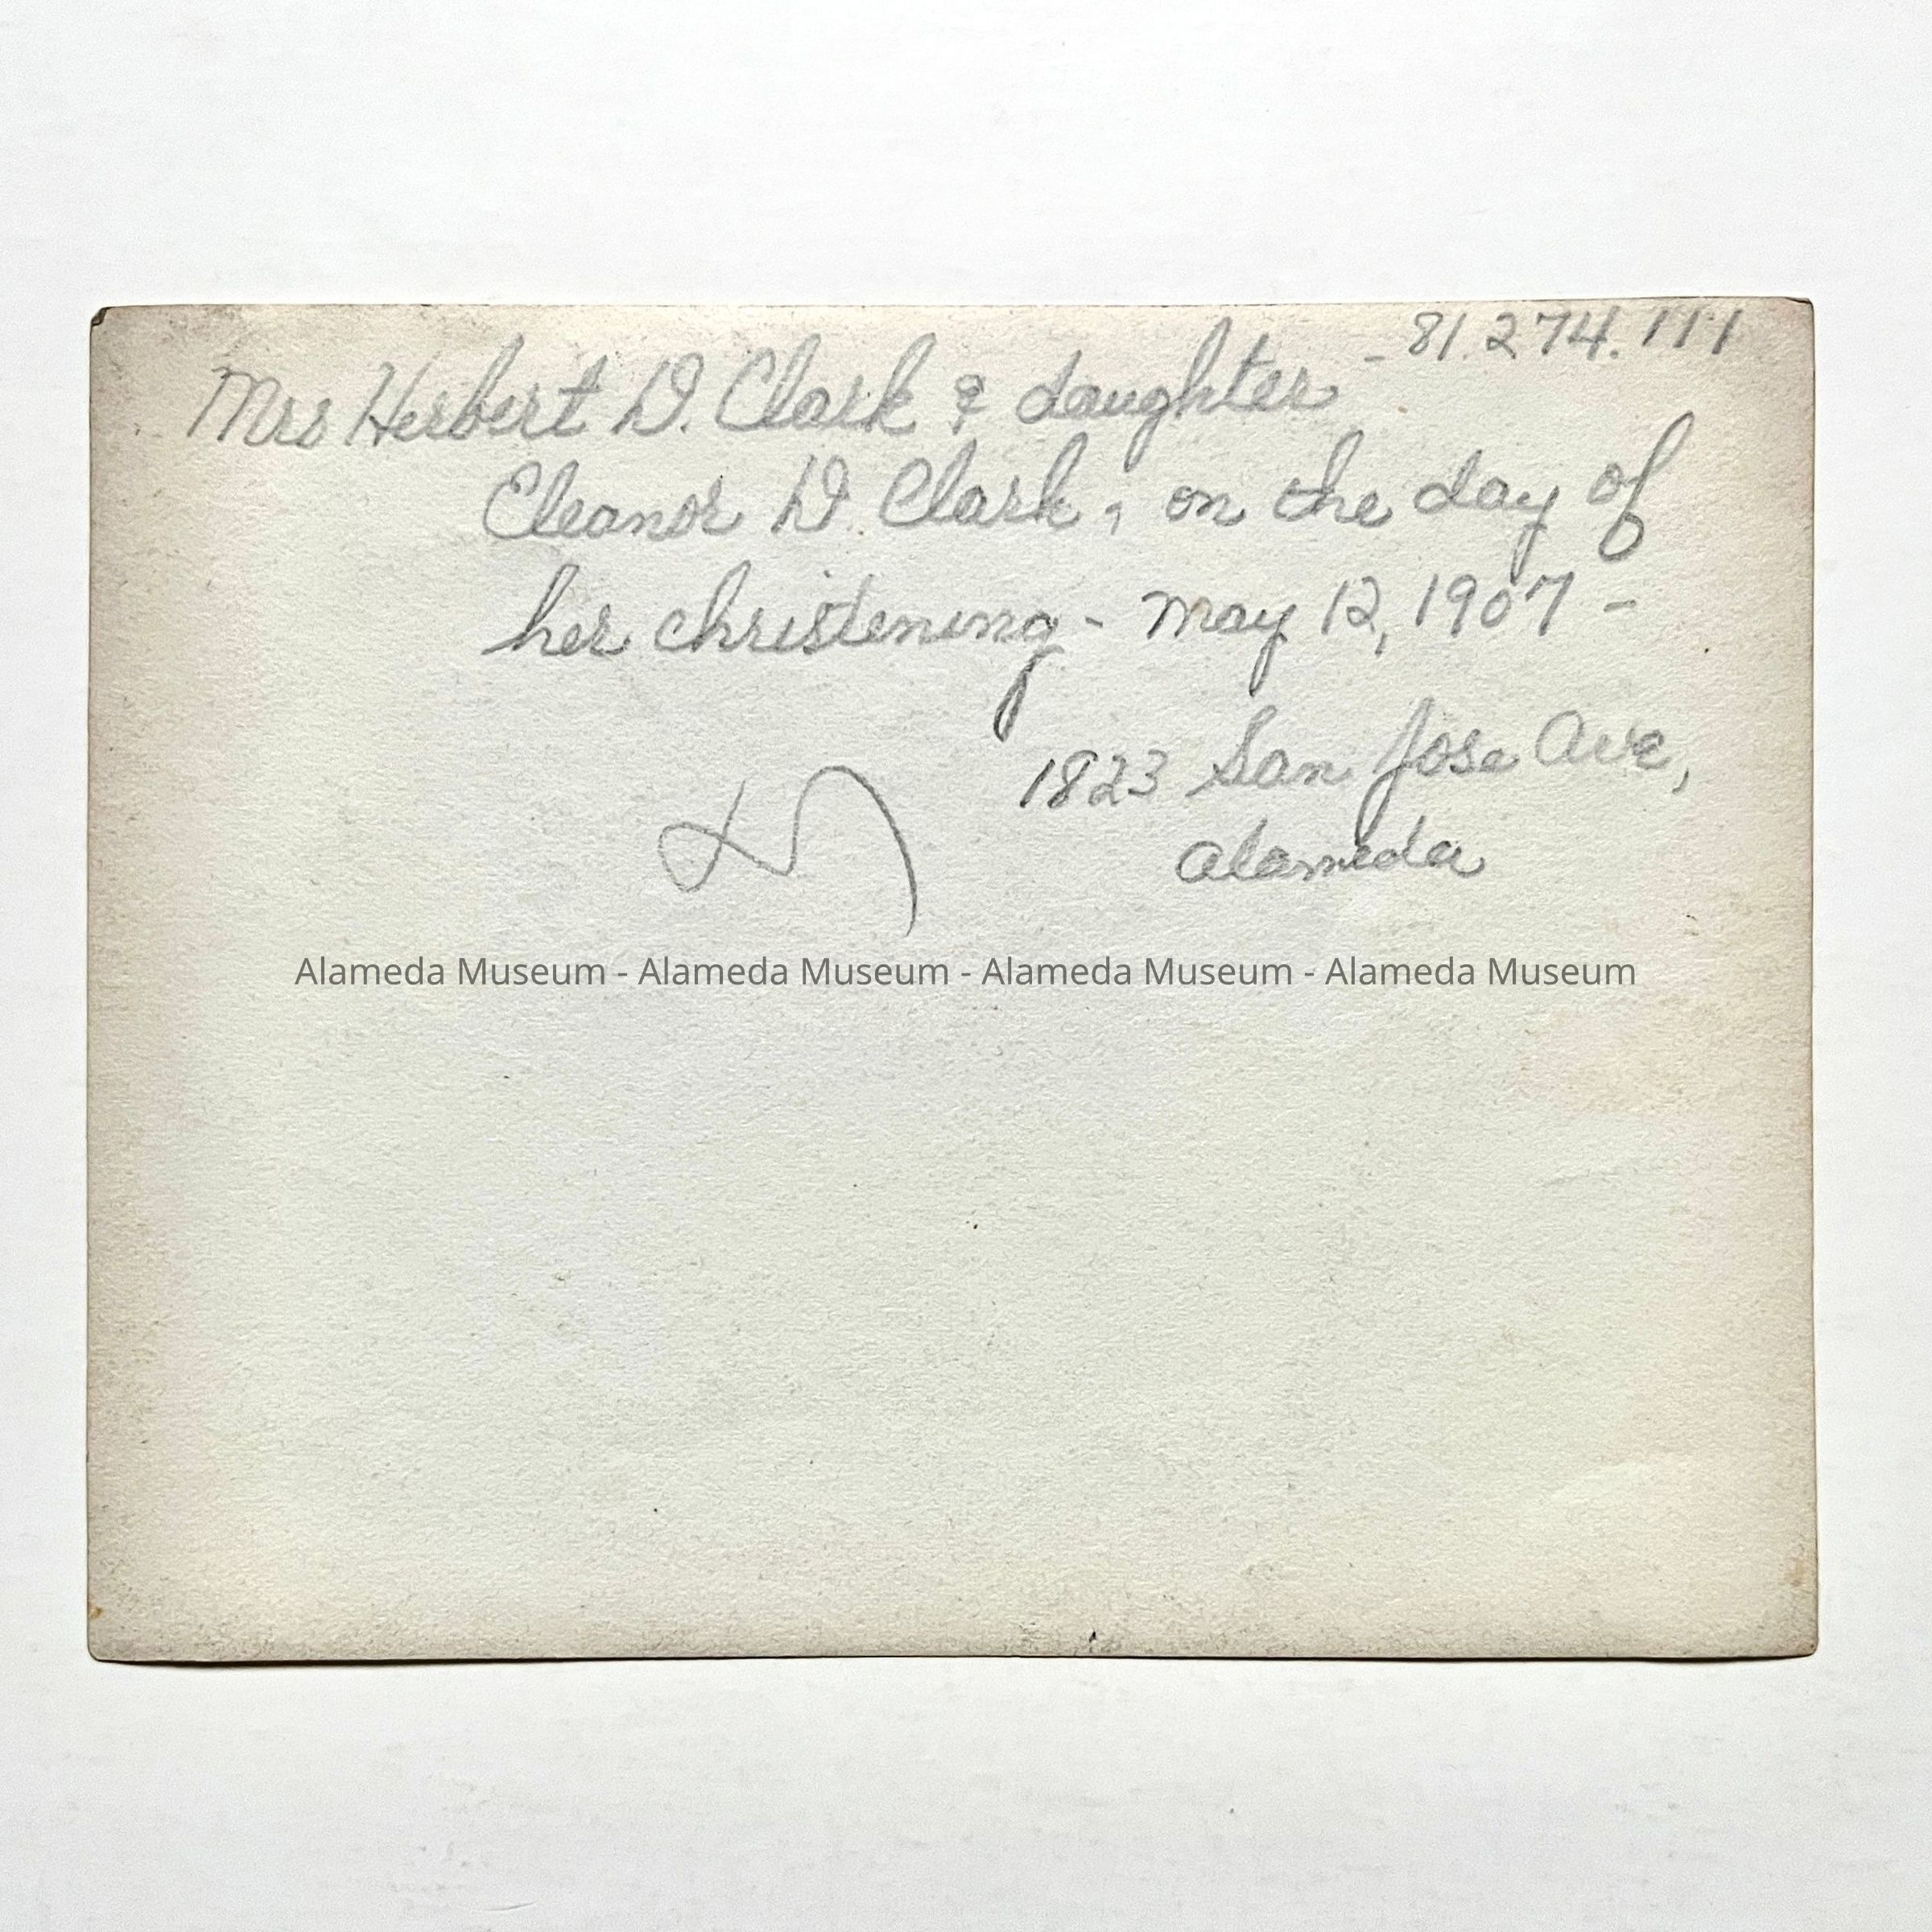 - 81.274.111
Mrs Herbert D. Clark & daughter
Eleanor D. Clark, on the day of
her christening - May 12, 1907 -
1823 San Jose Ave,
Alameda
Alameda Museum - Alameda Museum - Alameda Museum - Alameda Museum